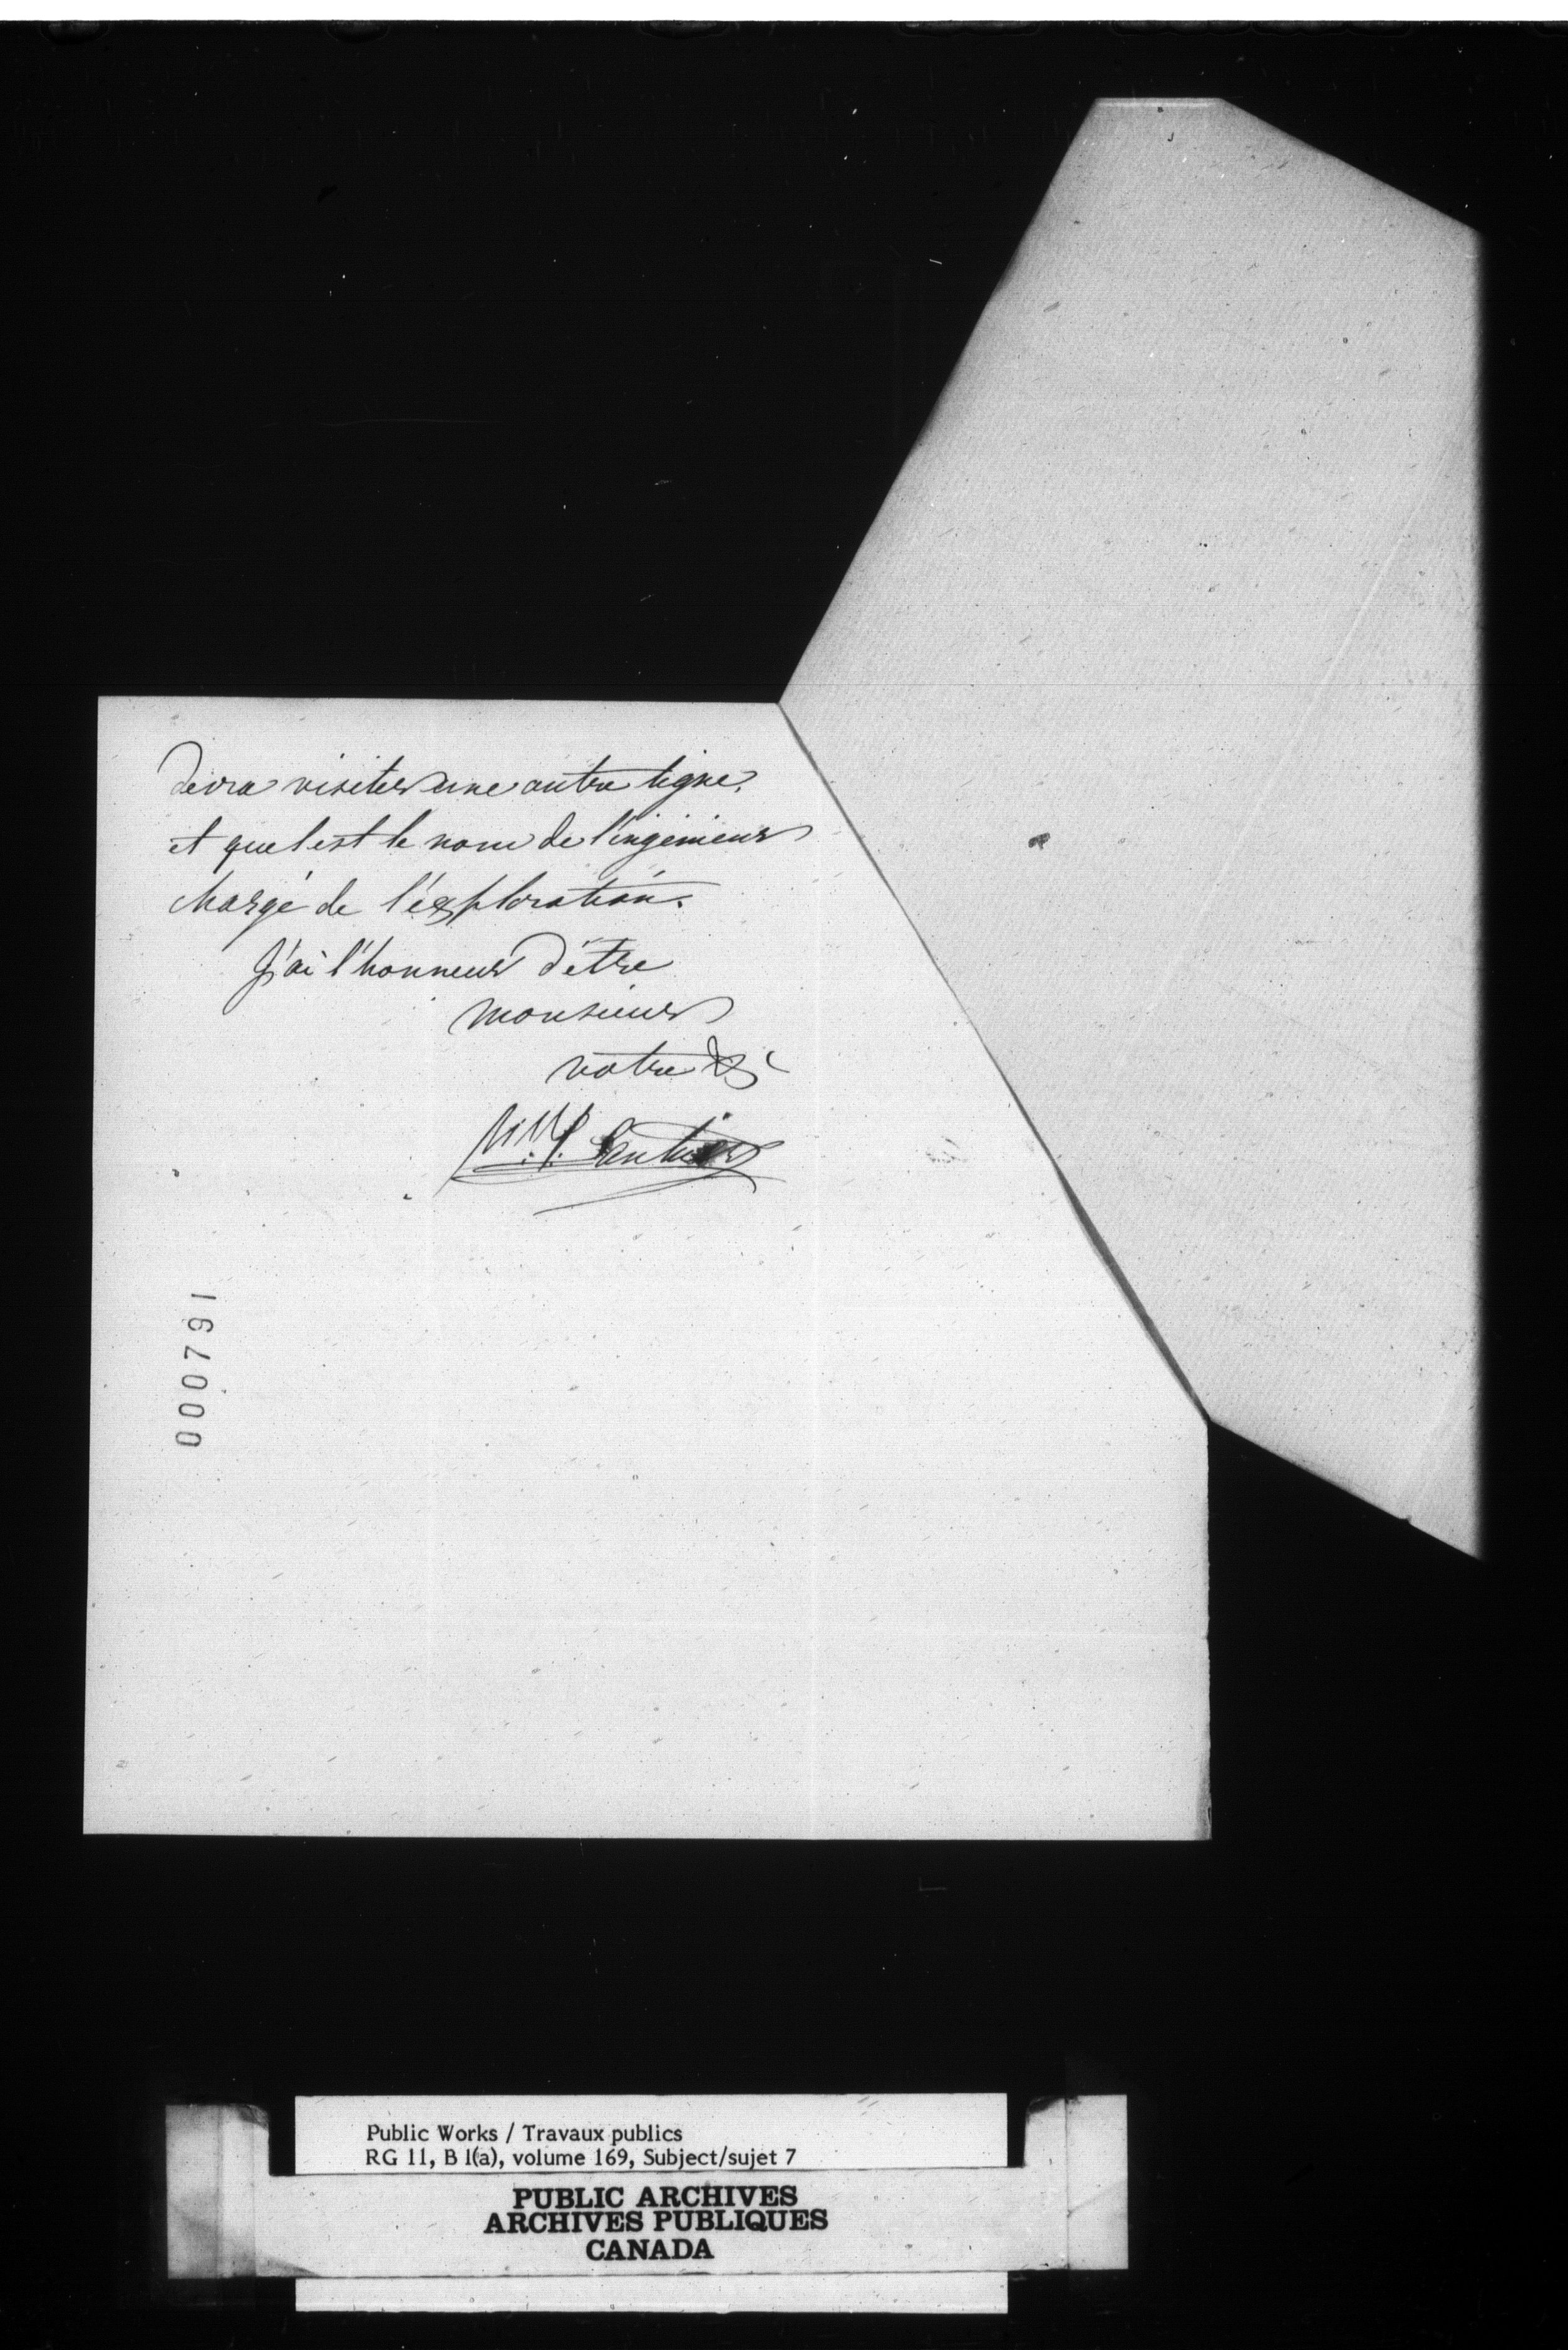 devra visiter une autre ligne,
et quel est le nom de l'ingénieur
chargé de l'éxploration.
J'ai l'honneur d'être
monsieur
votre &c
Gauthier
000791
Public Works / Travaux publics
RG 11, B 1(a), volume 169, Subject/sujet 7
PUBLIC ARCHIVES
ARCHIVES PUBLIQUES
CANADA